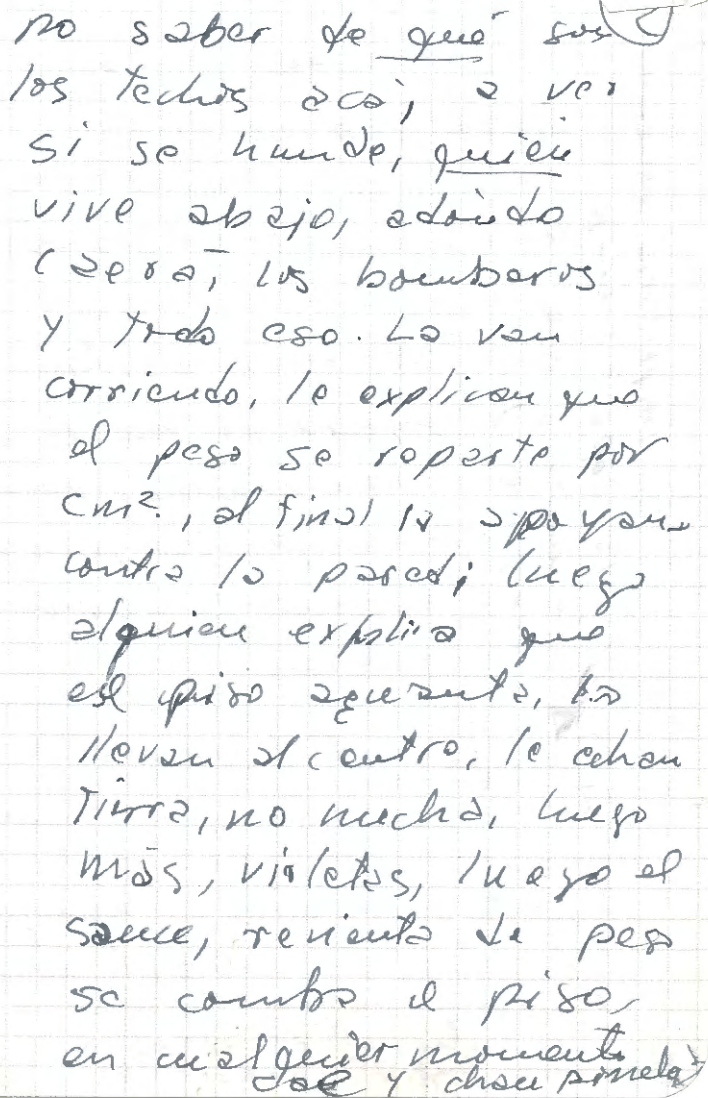 no saber de qué son
los techos acá, a ver
si se hunde, quién
vive abajo, adónde
caerá, los bomberos
y todo eso. La van
corriendo, le explican que
el peso se reparte por
cm², al final la apoyan
contra la pared; luego
alguien explica que
el piso aguanta, la
llevan al centro, le echan
tierra, no mucha, luego
más, violetas, luego el
sauce, revienta de peso
se comba el piso,
en cualquier momento
cae y chau